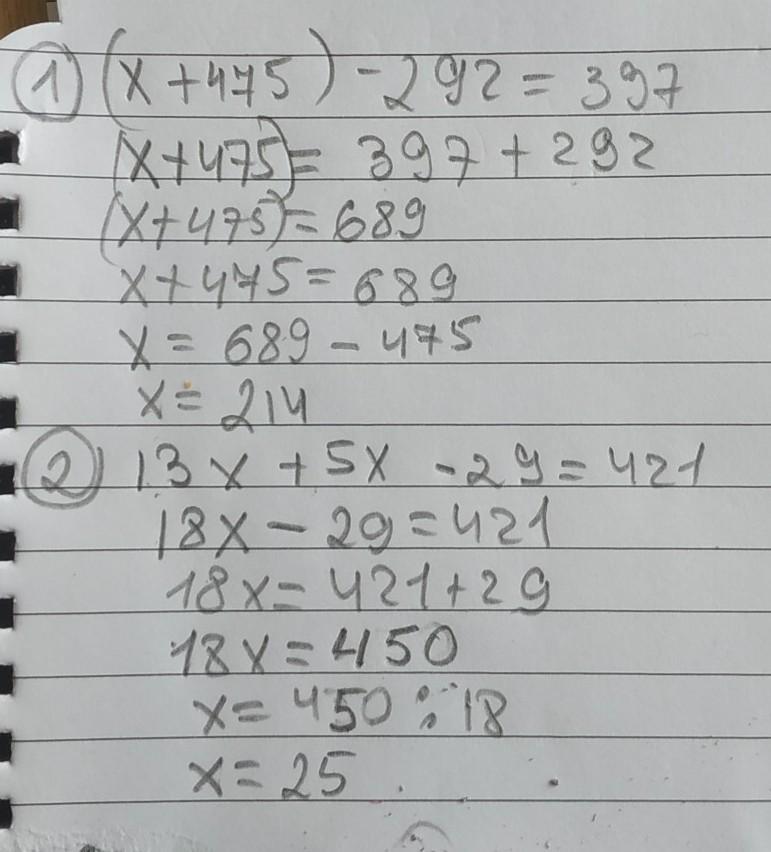 1) (x+475)-292=397
(x+475)=397+292
(x+475)=689
x+475=689
x=689-475
x=214
2) 13x+5x-29=421
18x-29=421
18x=421+29
18x=450
x=450:18
x=25